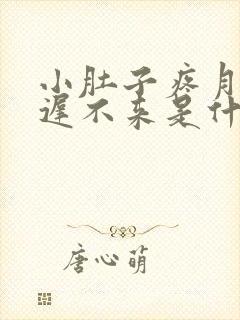 小肚子疼月
迟不来是什
唐心萌